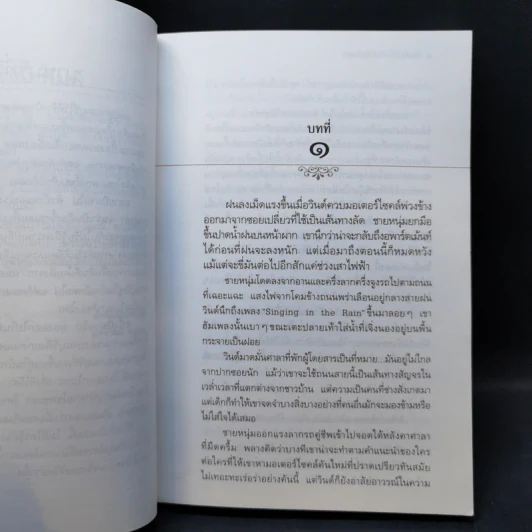 บทที่
๑
ฝนลงเม็ดแรงขึ้นเมื่อวินต์ควบมอเตอร์ไซคล์พ่วงข้าง
ออกมาจากซอยเปลี่ยวที่ใช้เป็นเส้นทางลัด ชายหนุ่มยกมือ
ขึ้นปาดน้ำฝนบนหน้าผาก เขานึกว่าน่าจะกลับถึงอพาร์ตเม้นท์
ได้ก่อนที่ฝนจะลงหนัก แต่เมื่อมาถึงตอนนี้ก็หมดหวัง
แม้แต่จะขี่มันต่อไปอีกสักแค่ช่วงเสาไฟฟ้า
ชายหนุ่มโดดลงจากอานและครึ่งลากครึ่งจูงรถไปตามถนน
ที่เฉอะแฉะ แสงไฟจากโคมข้างถนนพร่าเลือนอยู่กลางสายฝน
วินต์นึกถึงเพลง "Singing in the Rain" ขึ้นมาลอยๆ เขา
ฮัมเพลงนั้นเบาๆ ขณะเตะปลายเท้าใส่น้ำที่เจิ่งนองอยู่บนพื้น
กระจายเป็นฝอย
วินต์มาดมั่นศาลาที่พักผู้โดยสารเป็นที่หมาย...มันอยู่ไม่ไกล
จากปากซอยนัก แม้ว่าเขาจะใช้ถนนสายนี้เป็นเส้นทางสัญจรใน
เวล่ำเวลาที่แตกต่างจากชาวบ้าน แต่ความเป็นคนที่ช่างสังเกตมา
แต่เด็กก็ทำให้เขาจดจำบางสิ่งบางอย่างที่คนอื่นมักจะมองข้ามหรือ
ไม่ใส่ใจได้เสมอ
ชายหนุ่มออกแรงลากรถคู่ชีพเข้าไปจอดใต้หลังคาศาลา
ที่มืดครึ้ม พลางคิดว่าบางทีเขาน่าจะทำตามคำแนะนำของใคร
ต่อใครที่ให้เขาหามอเตอร์ไซคล์คันใหม่ที่ปราดเปรียวทันสมัย
ไม่เทอะทะเร่อร่าอย่างคันนี้ แต่วินต์ก็ยังอาลัยอาวรณ์ในความ